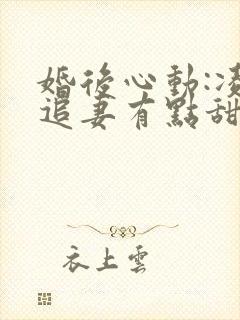 婚後心動:凌
追妻有點甜
衣上雲